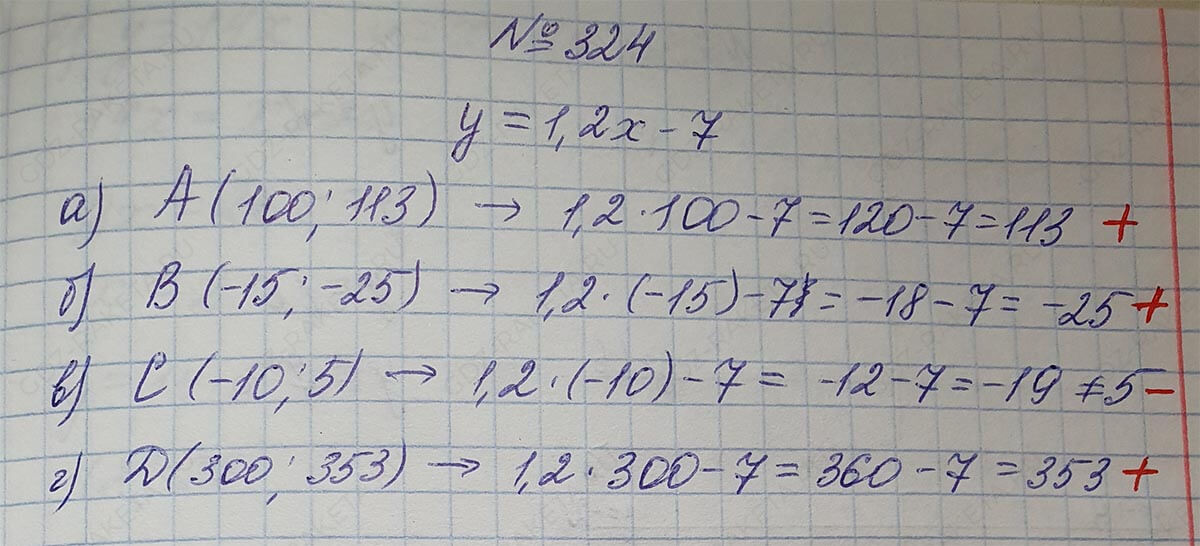 № 324
y = 1,2x - 7
а) A (100; 113) → 1,2 · 100 - 7 = 120 - 7 = 113 +
б) B (-15; -25) → 1,2 · (-15) - 7 = -18 - 7 = -25 +
в) C (-10; 5) → 1,2 · (-10) - 7 = -12 - 7 = -19 ≠ 5 -
г) D (300; 353) → 1,2 · 300 - 7 = 360 - 7 = 353 +